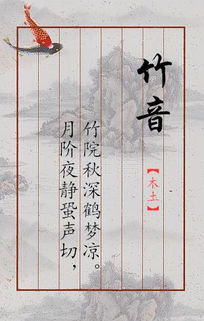 竹音
【木土】
竹院秋深鹤梦凉。
月阶夜静蛩声切，